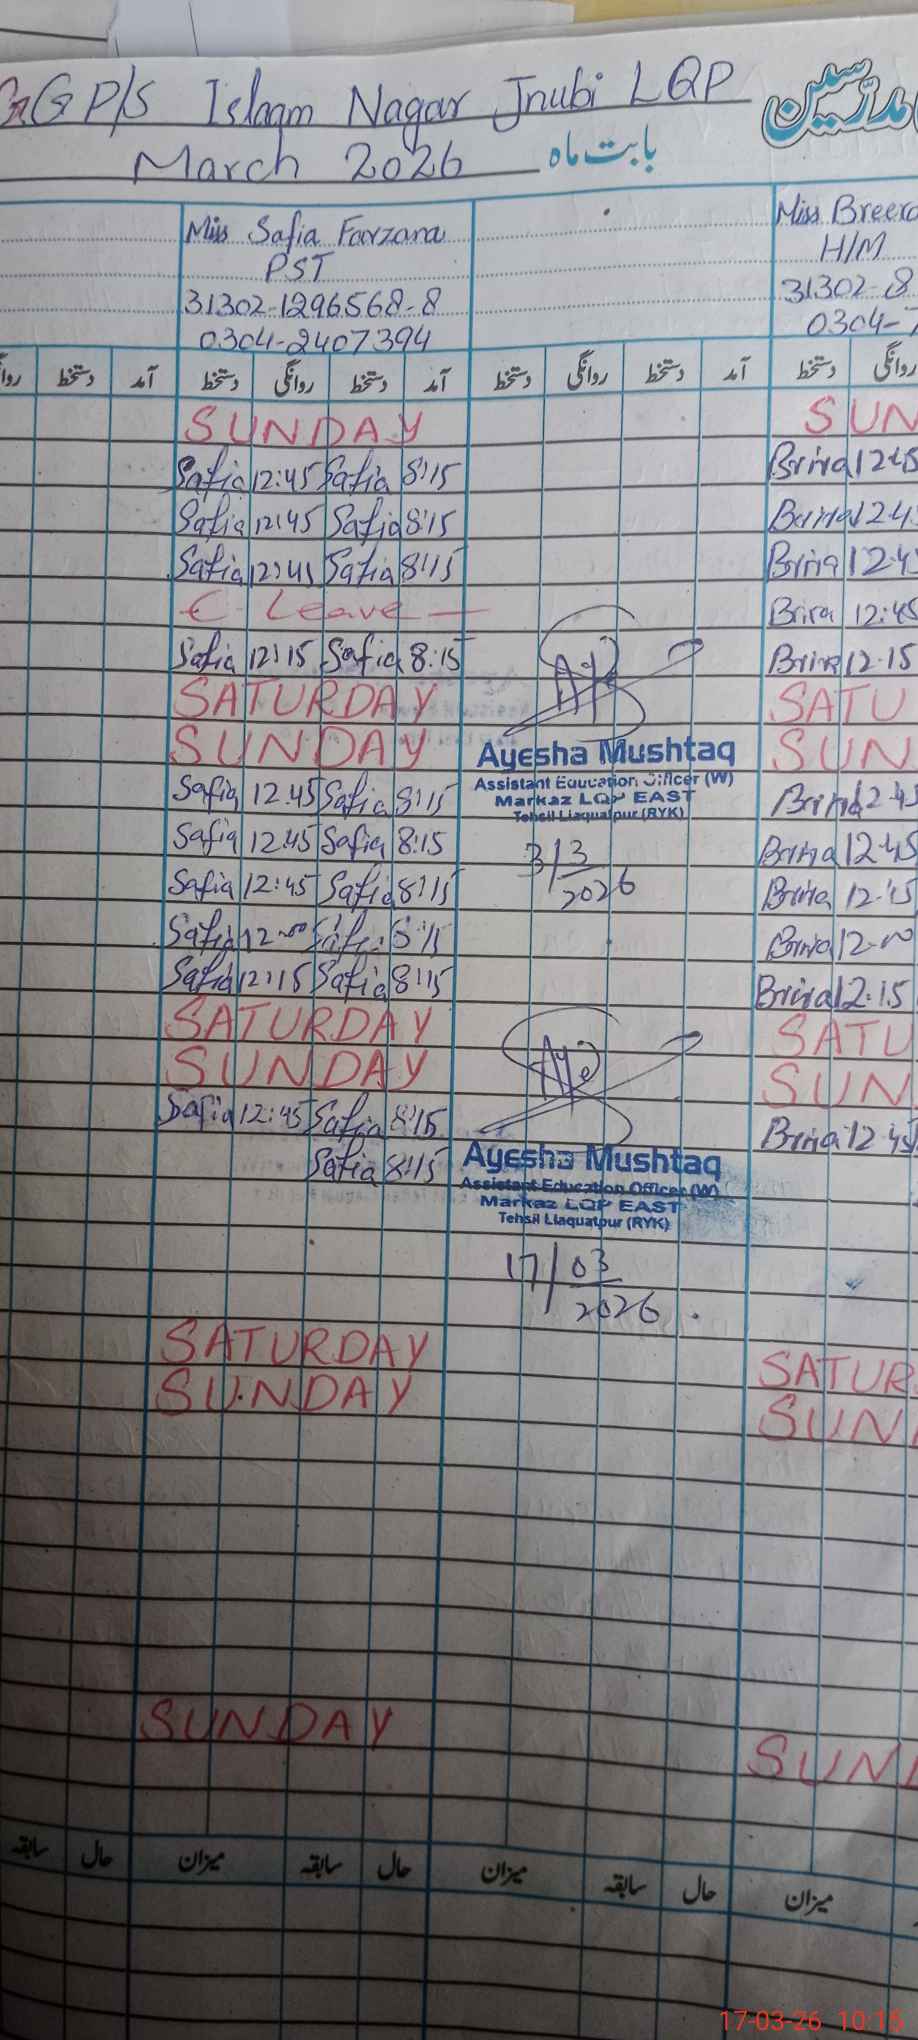 GGP/S Islaqm Nagar Jnubi LQP
مدرسین
March 2026 بابت ماہ
Miss Safia Farzana
PST
31302-1296568-8
0304-2407394
Miss Breera
H/M
31302-8
0304-7
دستخط آمد دستخط روانگی دستخط آمد دستخط روانگی دستخط آمد دستخط روانگی
SUNDAY SUN
Safia 12:45 Safia 8:15 Brira 12:45
Safia 12:45 Safia 8:15 Brira 12:4
Safia 12:45 Safia 8:15 Brira 12:4
C- Leave — Brira 12:45
Safia 12:15 Safia 8:15 Brira 12:15
SATURDAY SATU
SUNDAY SUN
Ayesha Mushtaq
Assistant Education Officer (W)
Markaz LQP EAST
Tehsil Liaquatpur (RYK)
3/3
2026
Safia 12:45 Safia 8:15 Brira 12:45
Safia 12:45 Safia 8:15 Brira 12:45
Safia 12:45 Safia 8:15 Brira 12:15
Safia 12:00 Safia 8:15 Brira 12:00
Safia 12:15 Safia 8:15 Brira 12:15
SATURDAY SATU
SUNDAY SUN
Safia 12:45 Safia 8:15 Brira 12:45
Safia 8:15
Ayesha Mushtaq
Assistant Education Officer (W)
Markaz LQP EAST
Tehsil Liaquatpur (RYK)
17/03
2026
SATURDAY SATUR
SUNDAY SUN
SUNDAY SUN
سابقہ حال میزان سابقہ حال میزان سابقہ حال میزان
17-03-26 10:15